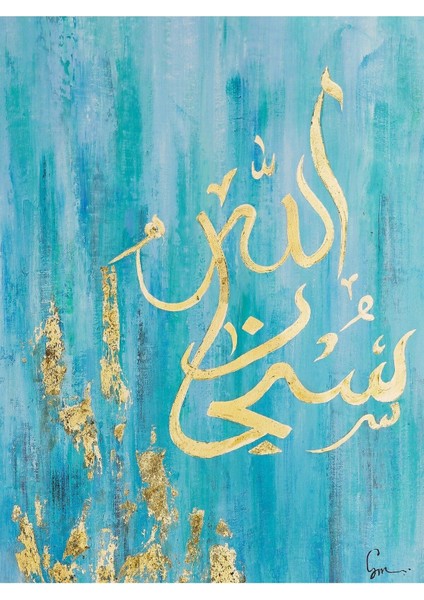 سبحان
الله